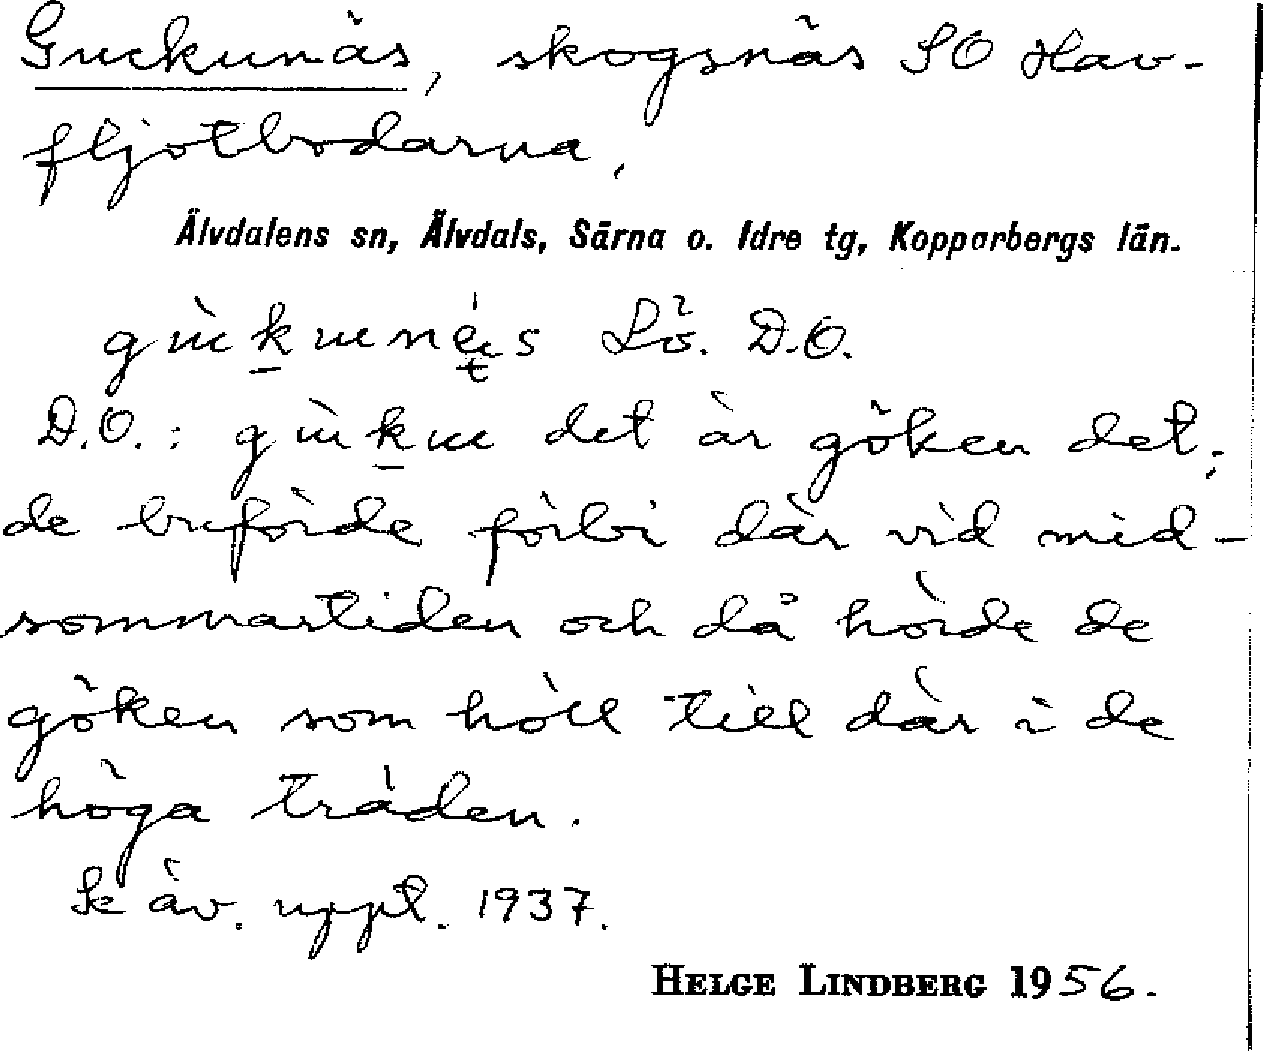 Guckunäs, skogsnäs SO Hav-
fljotbodarna,
Älvdalens sn, Älvdals, Särna o. Idre tg, Kopparbergs län.
Lö. D.O.
D.O.: det är göken det;
de buförde förbi där vid mid-
sommartiden och då hörde de
göken som höll till där i de
höga träden.
Se äv. uppt. 1937.
HELGE LINDBERG 1956.